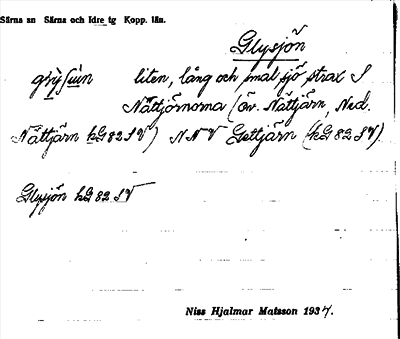 Särna sn Särna och Idre tg Kopp. län.
Glysjön
liten, lång och smal sjö, strax S
Nättjörnorna (Öv. Nättjärn, Ned.
Nättjärn kG 82 SV) NNV Gettjärn (kG 82 SV).
Glysjön kG 82 SV
Niss Hjalmar Matsson 1937.